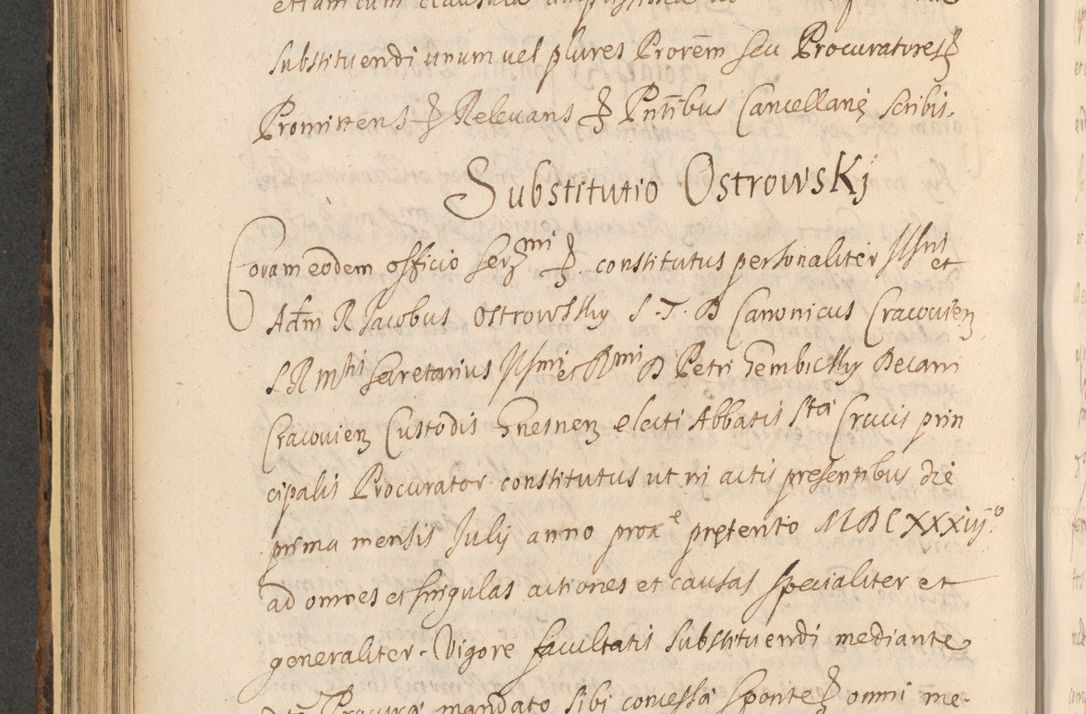 etiam cum clausula
substituendi unum vel plures Prorēm seu Procuratores
Promittens Relevans Pntībus Cancellarię scribis.
Substitutio Ostrowskj
Coram eodem officio Serᵐⁱ constitutus personaliter Illust et
Adm R Jacobus Ostrowskhy S. T. D Canonicus Cracovien
S R Mᵗⁱˢ Secretarius Illmi et Rᵐⁱ D Petri Gembickhy Decani
Cracovien Custodis Gnesnen electi Abbatis Stæ Crucis prin
cipalis Procurator constitutus ut in actis presentibus die
prima mensis Julij anno proxᵉ pręterito MDCXXXiijᵒ
ad omnes et singulas actiones et causas specialiter et
generaliter. Vigore facultatis substituendi mediante
Procura mandato sibi concessa sponte omni me-